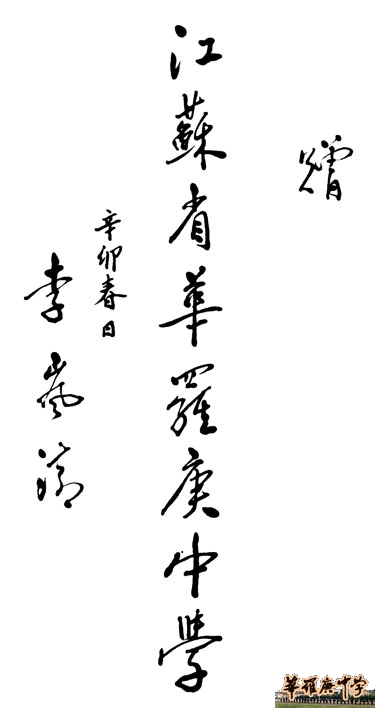 贈
江蘇省華羅庚中學
辛卯春日
李嵐清
華羅庚中学